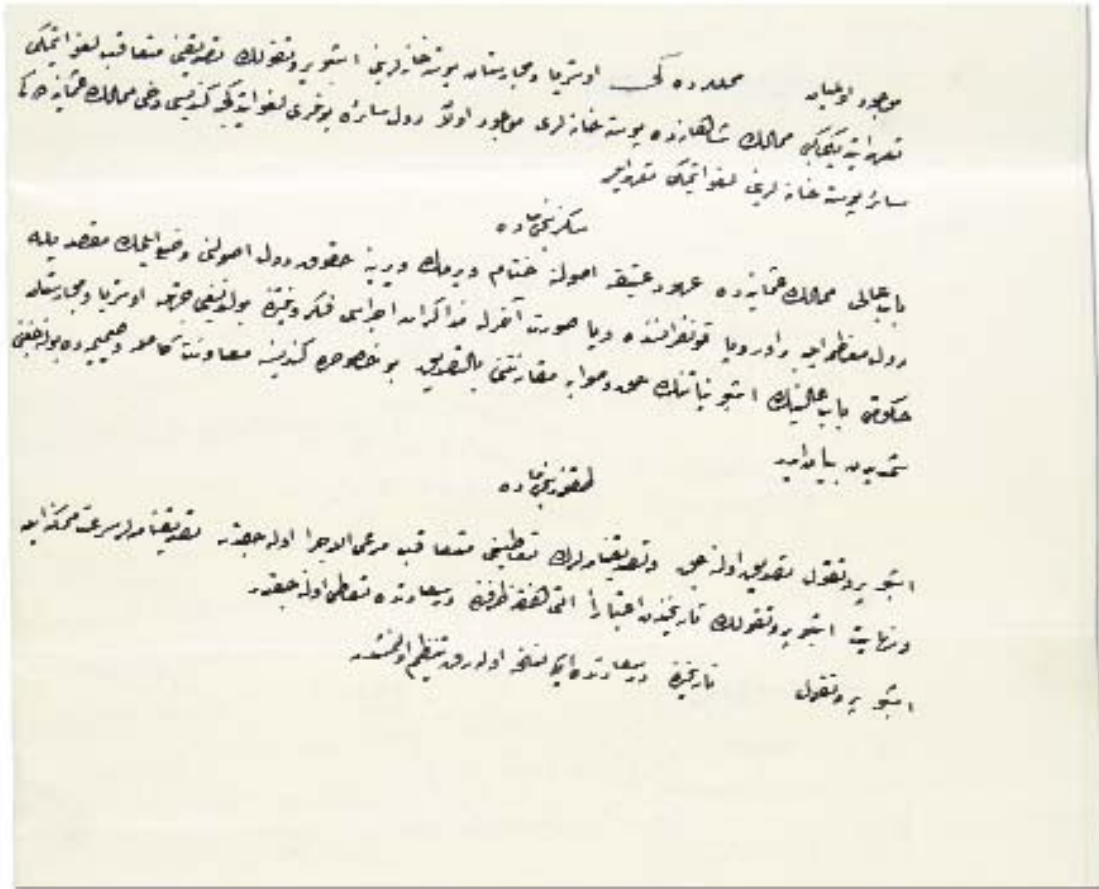 موجود اولميان محللرده كى اوستريا ومجارستان پوسته خانه لرينى اشبو پروتوقولك تصديقنى متعاقب لغو ايتمكى
تعهد ايتديكى كبى ممالك شاهانه ده پوسته خانه لرى موجود اولان دول سائره بونلرى لغو ايتدكجه كنديسى دخى ممالك عثمانيه ده كى
سائر پوسته خانه لرينى لغو ايتمكى تعهد ايدر
سكزنجى ماده
باب عالى ممالك عثمانيه ده عهود عتيقه اصولنه ختام ويرمك ويرينه حقوق دول اصولنى وضع ايلمك مقصديله
دول معظمه ايله بر اوروپا قونفرانسنده ويا صورت آخرله مذاكرات اجراسى فكرنده بولنديغى جهتله اوستريا ومجارستان
حكومتى باب عالينك اشبو نياتنك حق وصوابه مقارنتنى بالتصديق بو خصوصده كنديسنه معاونت كامله وصميميه ده بولنه جغنى
شمديدن بيان ايدر
طقوزنجى ماده
اشبو پروتوقول تصديق اوله جق وتصديقنامه لرك تعاطيسنى متعاقب مرعى الاجرا اوله جقدر تصديقنامه لر سرعت ممكنه ايله
ونهايت اشبو پروتوقولك تاريخندن اعتباراً التى هفته ظرفنده درسعادتده تعاطى اوله جقدر
اشبو پروتوقول تاريخنده درسعادتده ايكى نسخه اوله رق تنظيم اولنمشدر